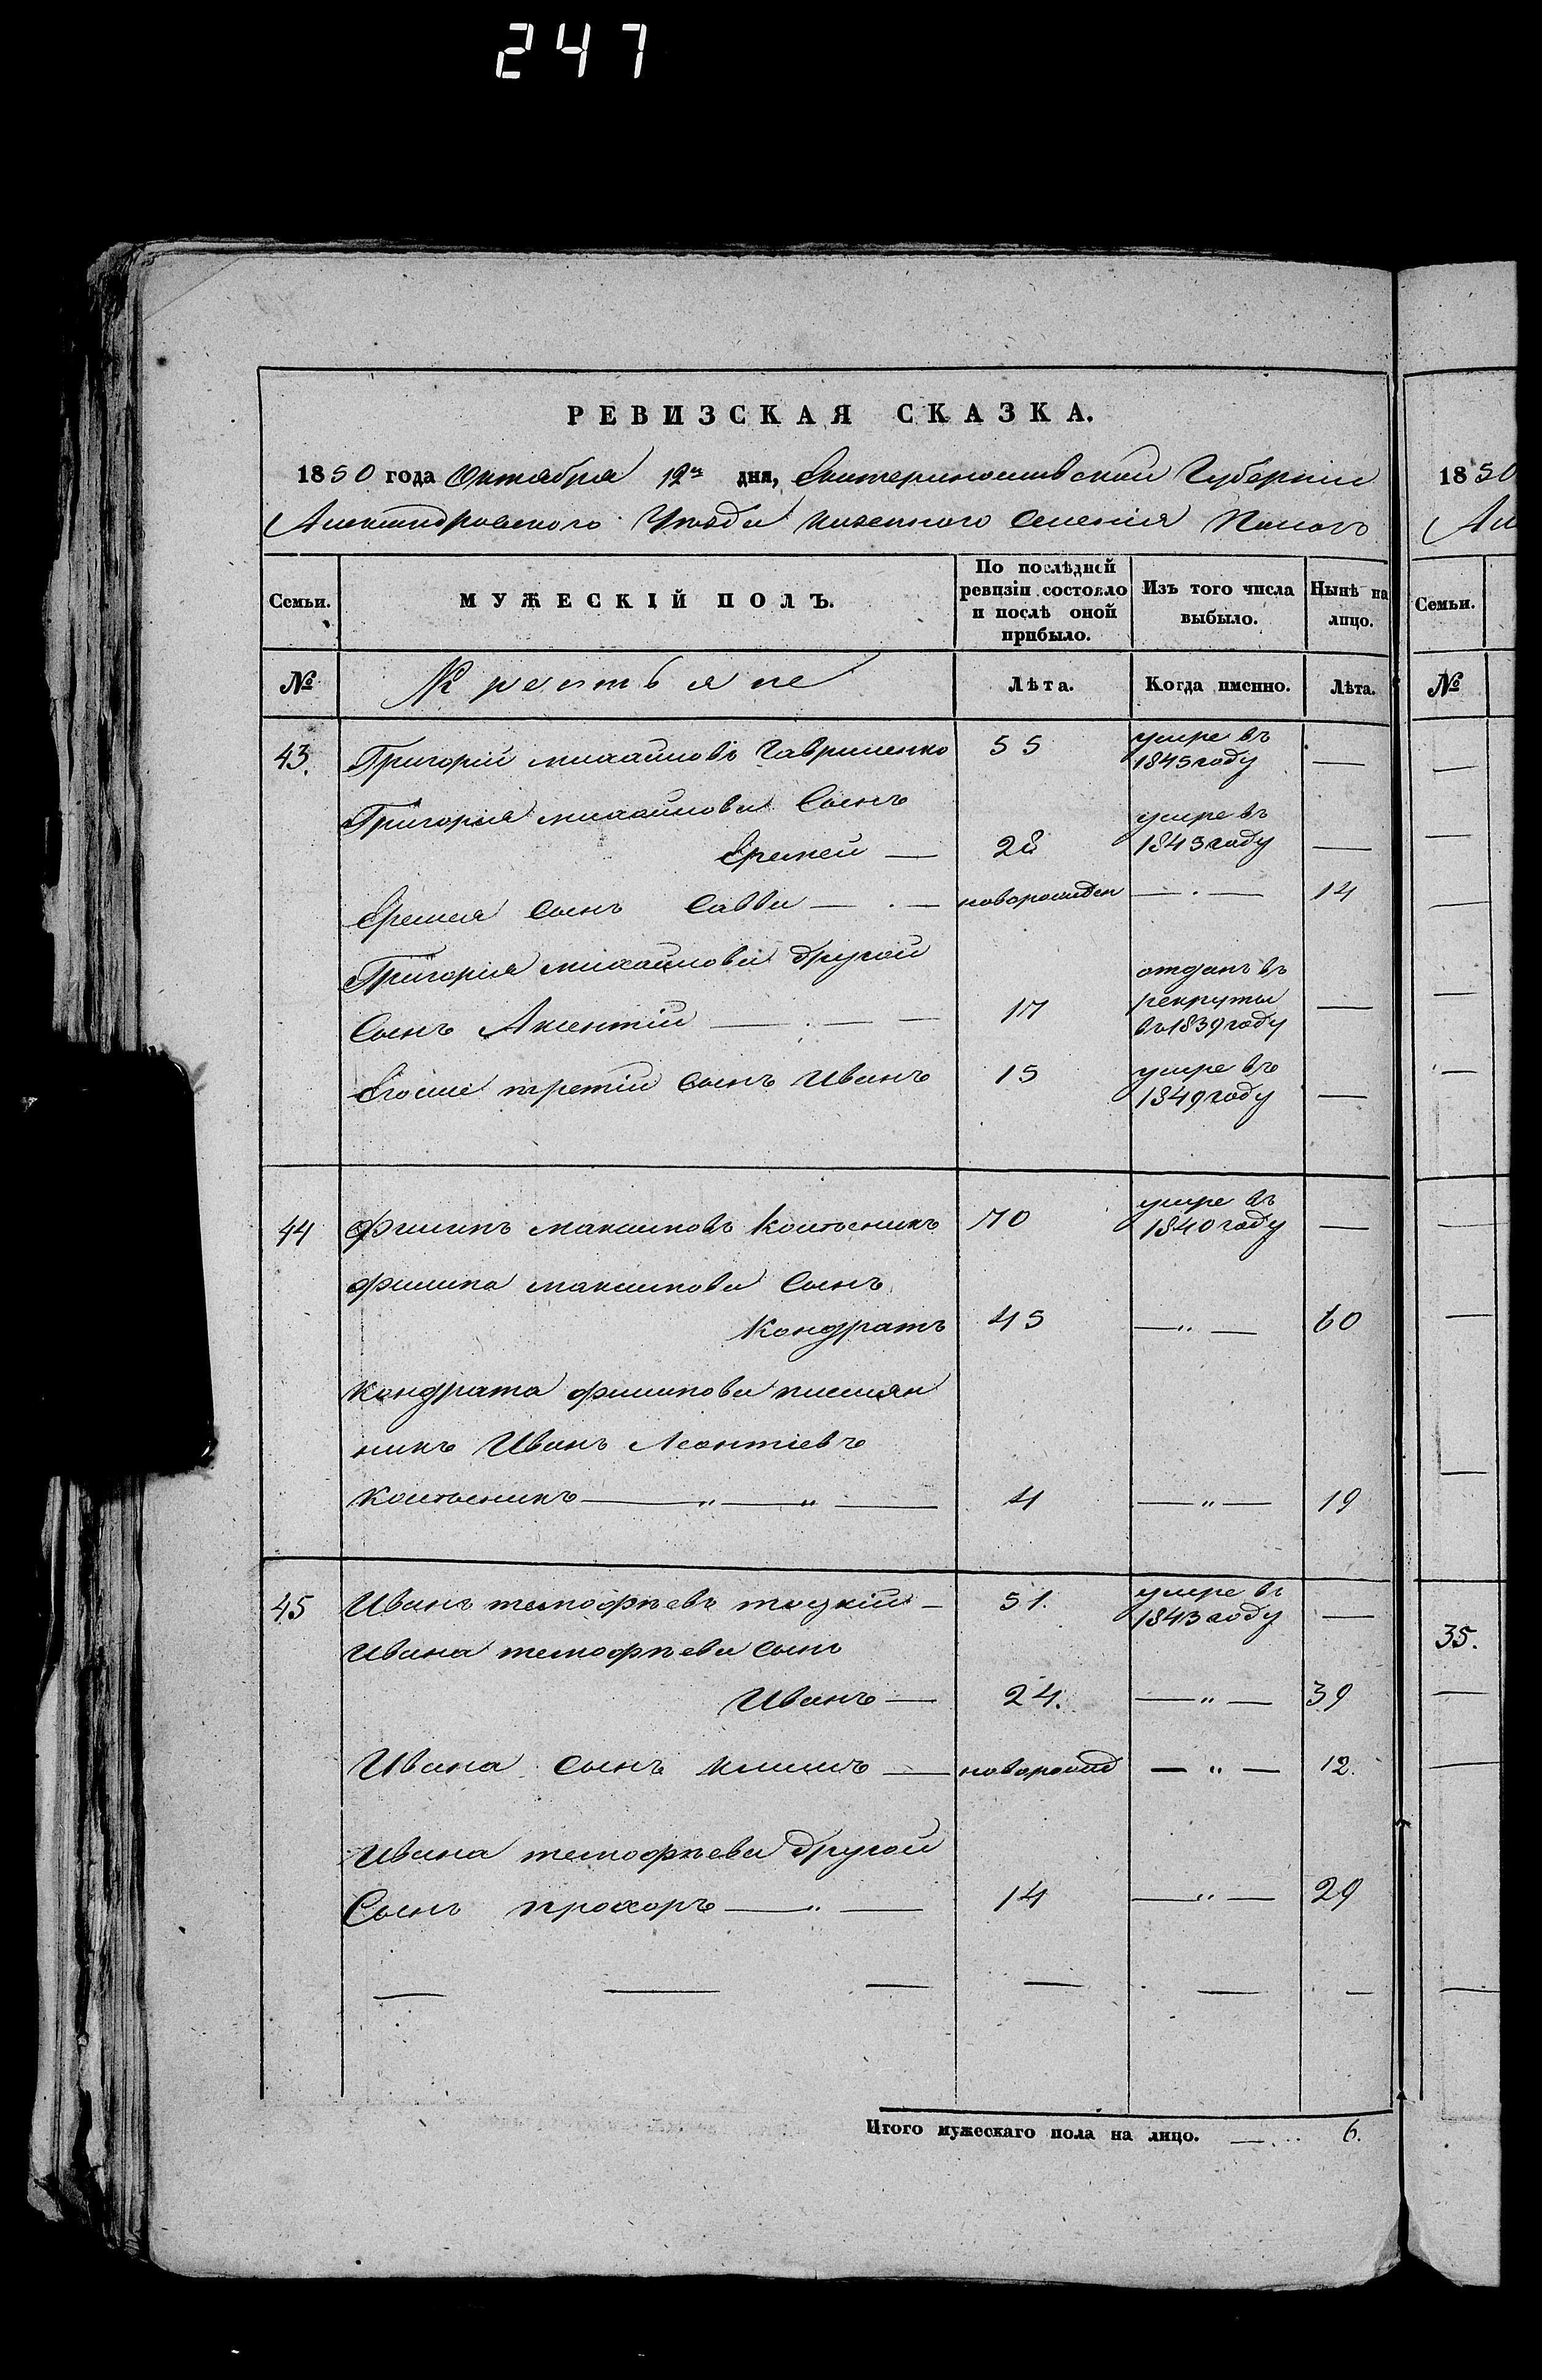 247
РЕВИЗСКАЯ СКАЗКА.
1850 года Октября 12го дня, Екатеринославской Губерніи
Александровского Уѣзда казенного Селенія Пологъ
Семьи.
МУЖЕСКІЙ ПОЛЪ.
По послѣдней ревизіи состояло и послѣ оной прибыло.
Изъ того числа выбыло.
Нынѣ на лицо.
№
Крестьяне
Лѣта.
Когда именно.
Лѣта.
43. Григорій михайловъ Гавриленко 55 умре въ 1845 году —
Григорія михайлова Сынъ
Еремей — 28 умре въ 1843 году —
Еремея Сынъ Савва — . — новорожден — . — 14
Григорія михайлова другой
Сынъ Аксентій — . — — 17 отданъ въ рекруты въ 1839 году —
Егоже третій Сынъ Иванъ 15 умре въ 1849 году —
44 Филипъ максимовъ 70 умре въ 1840 году —
Филипа максимова Сынъ
Кондратъ 45 — „ — 60
Кондрата филипова племян
никъ Иванъ Леонтіевъ
— „ — „ — 4 — „ — 19
45 Иванъ темофѣевъ 51. умре въ 1843 году —
Ивана темофѣева сынъ
Иванъ — 24. — „ — 39
Ивана сынъ климъ — новорожд — „ — 12.
Ивана темофѣева другой
Сынъ прохоръ — „ — 14 — „ — 29
— — — — — —
Итого мужескаго пола на лицо. — . .. 6.
1850
Ал
Семьи.
№
35.